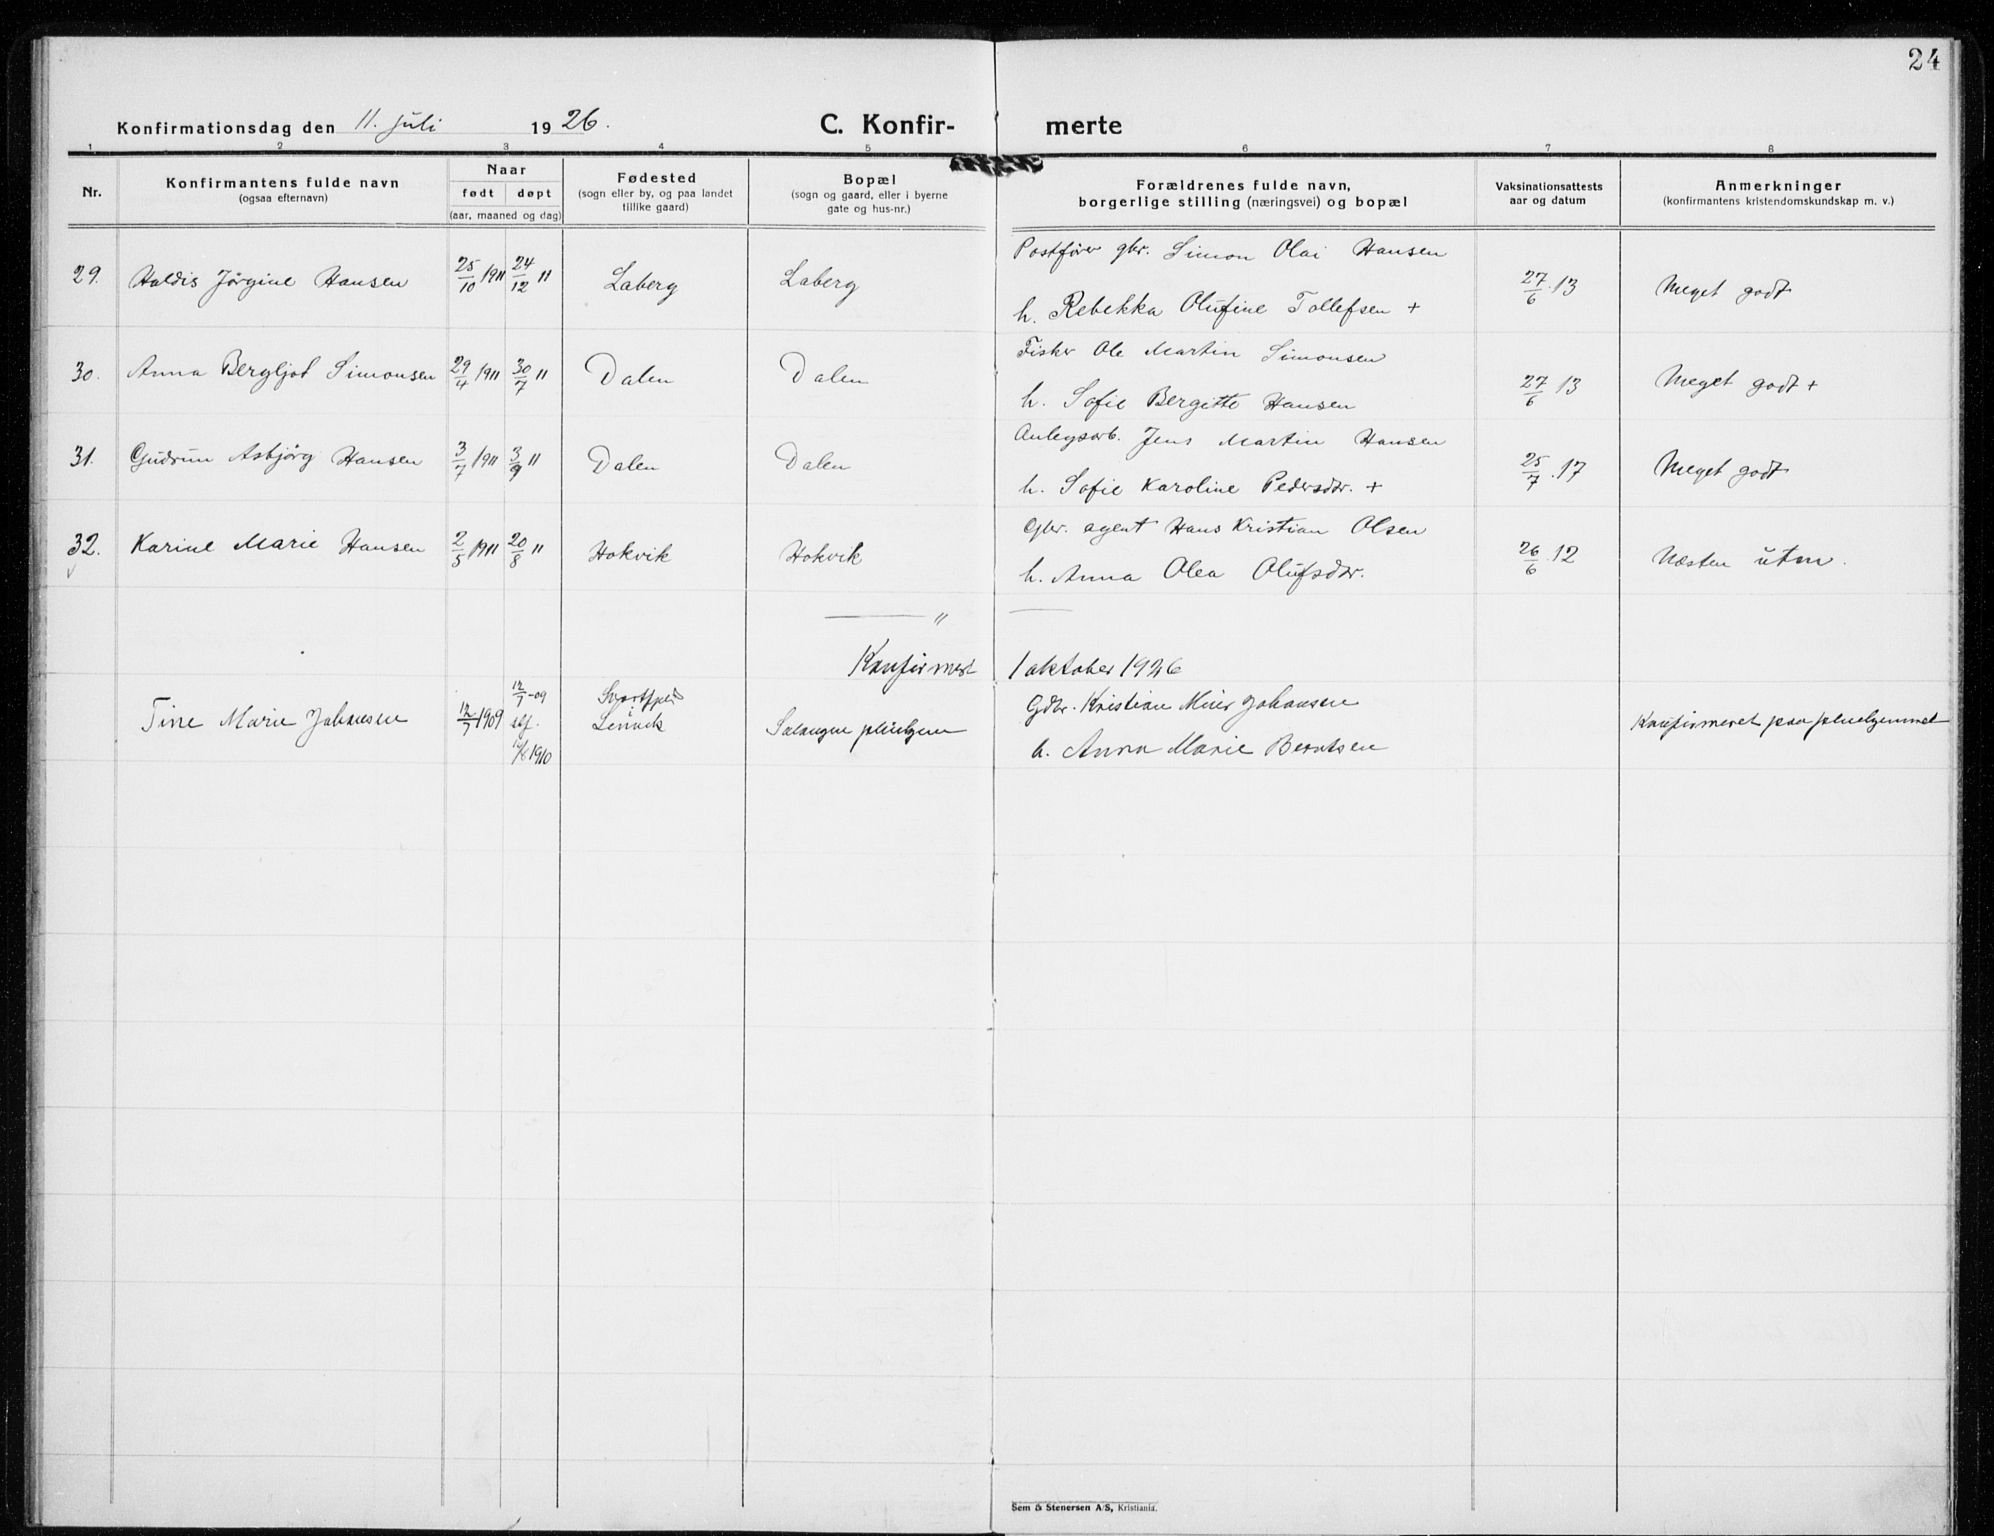 24
Konfirmationsdag den 11. juli 1926.
C. Konfirmerte
1 2 3 4 5 6 7 8
Nr.
Konfirmantens fulde navn
(ogsaa efternavn)
Naar
født døpt
(aar, maaned og dag)
Fødested
(sogn eller by, og paa landet
tillike gaard)
Bopæl
(sogn og gaard, eller i byerne
gate og hus-nr.)
Forældrenes fulde navn,
borgerlige stilling (næringsvei) og bopæl
Vaksinationsattests
aar og datum
Anmerkninger
(konfirmantens kristendomskundskap m. v.)
Postfører gbr. Simon Olai Hansen
29. Haldis Jørgine Hansen 25/10 1911 24/12 11 Laberg Laberg 27/6.13 Meget godt
h. Rebekka Olufine Tollefsen +
Fisker Ole Martin Simonsen
30. Anna Bergljot Simonsen 29/4 1911 30/7 11 Dalen Dalen 27/6 13 Meget godt +
h. Sofie Bergitte Hansen
Anlegsarb. Jens Martin Hansen
31. Gudrun Asbjørg Hansen 3/7 1911 3/9 11 Dalen Dalen 25/7.17 Meget godt
h. Sofie Karoline Pedersdtr. +
Gbr. agent Hans Kristian Olsen
32. Karine Marie Hansen 2/5 1911 20/8 11 Hokvik Hokvik 26/6.12 Næsten utm.
h. Anna Olea Olufsdtr.
— " —
Konfirmert 1 oktober 1926
12/7-09
Gdbr. Kristian Meier Johansen
Tine Marie Johansen 12/7 1909 stf. Salangen pleiehjem Konfirmeret paa pleiehjemmet
1910
h. Anna Marie Berntsen
Sem & Stenersen A/S, Kristiania.